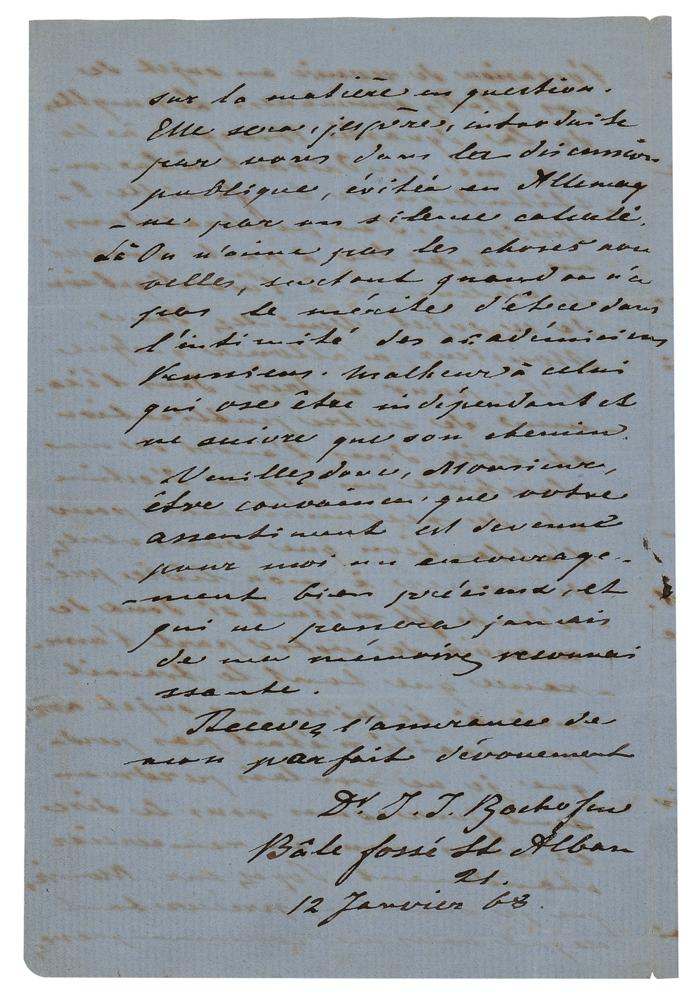 sur la matière en question.
Elle sera, j'espère, introduite
par vous dans la discussion
publique, évitée en Allemag
-ne par un silence calculé.
Là On n'aime pas les choses nou
velles, surtout quand on n'a
pas le mérite d'être dans
l'intimité des académiciens
Prussiens. Malheur à celui
qui ose être indépendant et
ne suivre que son chemin.
Veuillez donc, Monsieur,
être convaincu, que votre
assentiment est devenu
pour moi un encourage-
-ment bien précieux, et
qui ne passera jamais
de ma mémoire reconnai
ssante.
Recevez l'assurance de
mon parfait dévouement
Dr. J. J. Bachofen
Bâle fossé St Alban
21.
12 Janvier 63.